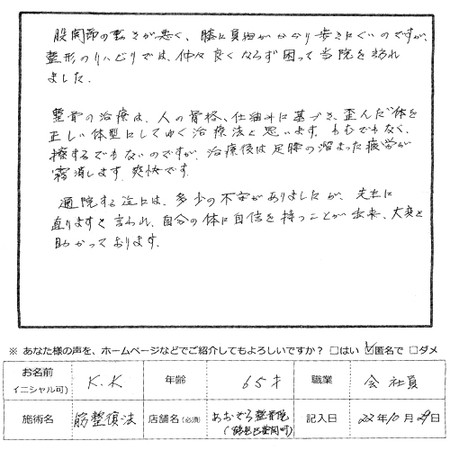 股関節の動きが悪く、膝に負担がかかり歩きにくいのですが、
整形のリハビリでは、仲々良くならず困って当院を訪れ
ました。
整骨の治療は、人の骨格、仕組みに基づき、歪んだ体を
正しい体型にしてゆく治療法と思います。もむでもなく、
擦するでもないのですが、治療後は足腰の溜まった疲労が
霧消します。爽快です。
通院する迄は、多少の不安がありましたが、先生に
直りますと言われ、自分の体に自信を持つことが出来、大変と
助かっております。
※ あなた様の声を、ホームページなどでご紹介してもよろしいですか？ □はい ☑匿名で □ダメ
お名前 イニシャル可) K.K 年齢 65才 職業 会社員
施術名 筋整復法 店舗名（必須） あおぞら整骨院 記入日 22年10月29日